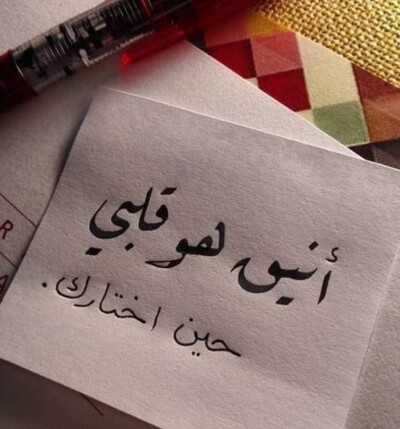 أنيق هو قلبي
حين اختارك.
R
A